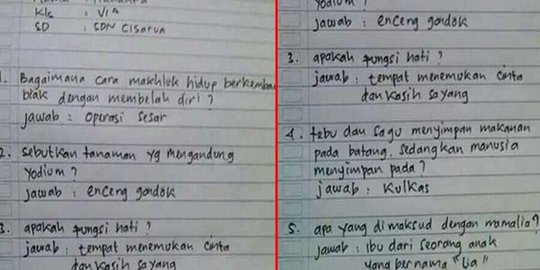 Kls : VI A
SD : SDN Cisarua
1. Bagaimana cara makhluk hidup berkemba
biak dengan membelah diri ?
jawab : operasi sesar
2. sebutkan tanaman yg mengandung
yodium ?
jawab : enceng gondok
3. apakah fungsi hati ?
jawab : tempat menemukan cinta
dan kasih sayang
yodium ?
jawab : enceng gondok
3. apakah fungsi hati ?
jawab : tempat menemukan cinta
dan kasih sayang
4. tebu dan sagu menyimpan makanan
pada batang. sedangkan manusia
menyimpan pada ?
jawab : kulkas
5. apa yang di maksud dengan mamalia ?
jawab : ibu dari seorang anak
yang bernama "Lia"